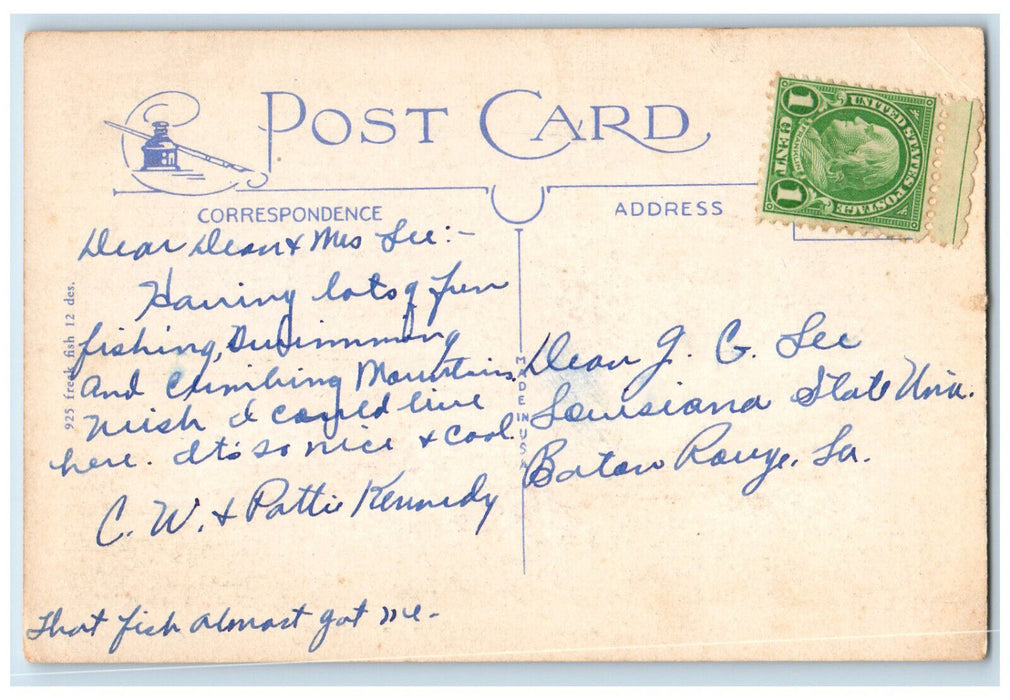 POST CARD
CORRESPONDENCE
ADDRESS
1 CENT 1
FRANKLIN
UNITED STATES POSTAGE
925 freak fish 12 des.
MADE IN USA
Dear Dean & Mrs Lee:-
Having lots of fun
fishing, swimming
and climbing Mountains.
Wish I could live
here. It's so nice & cool.
C. W. & Pattie Kennedy
That fish almost got me-
Dean J. G. Lee
Louisiana State Univ.
Baton Rouge, La.